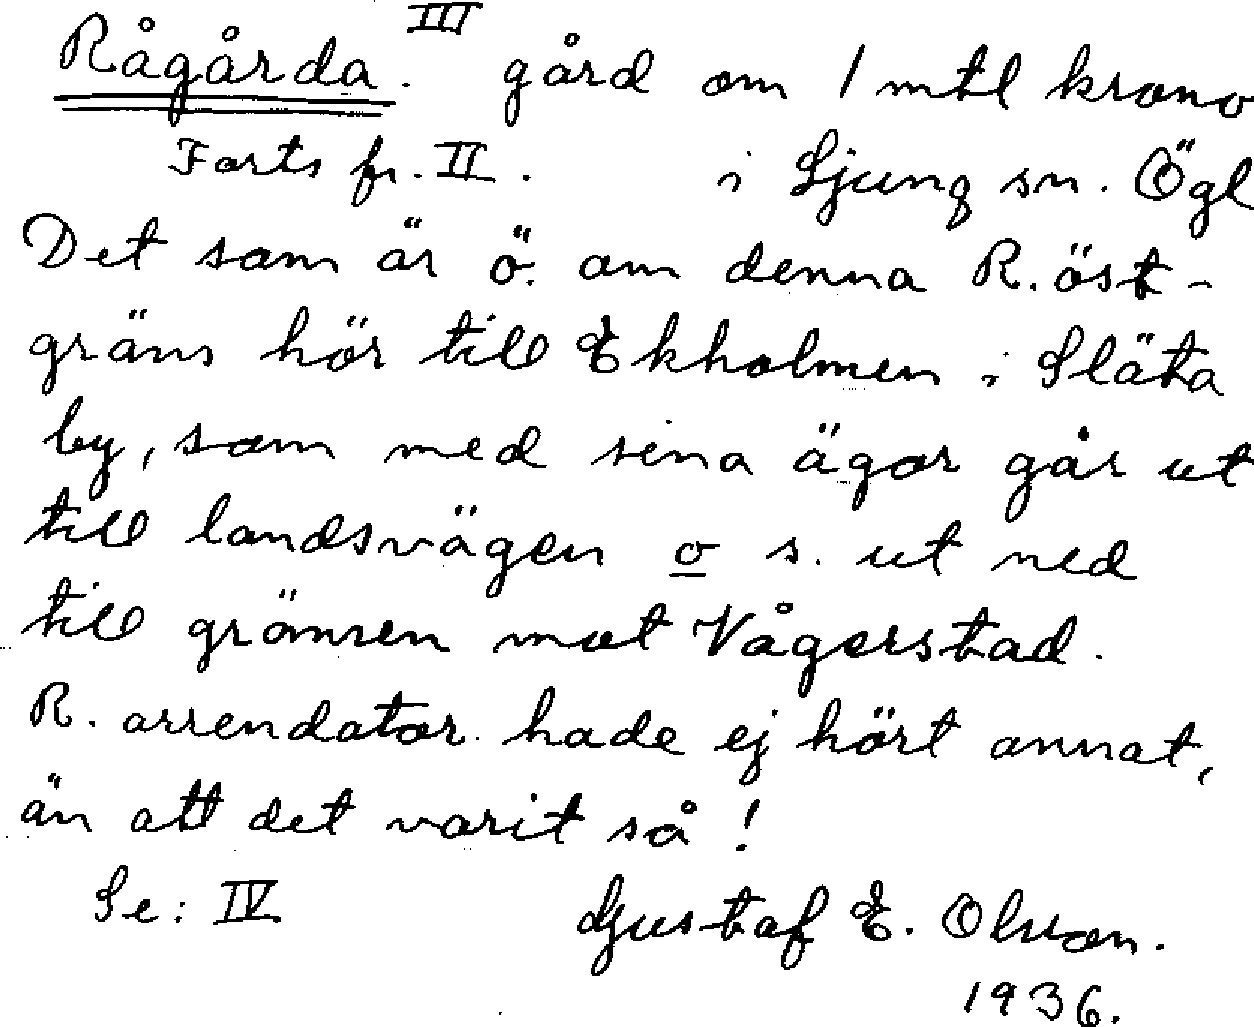 III
Rågårda. gård om 1 mtl krono
Forts fr. II. i Ljung sn. Ögl
Det som är ö. om denna R. öst-
gräns hör till Ekholmen i Släta
by, som med sina ägor går ut
till landsvägen o s. ut ned
till gränsen mot Vågerstad.
R. arrendator hade ej hört annat,
än att det varit så!
Se: IV Gustaf E. Olsson.
1936.